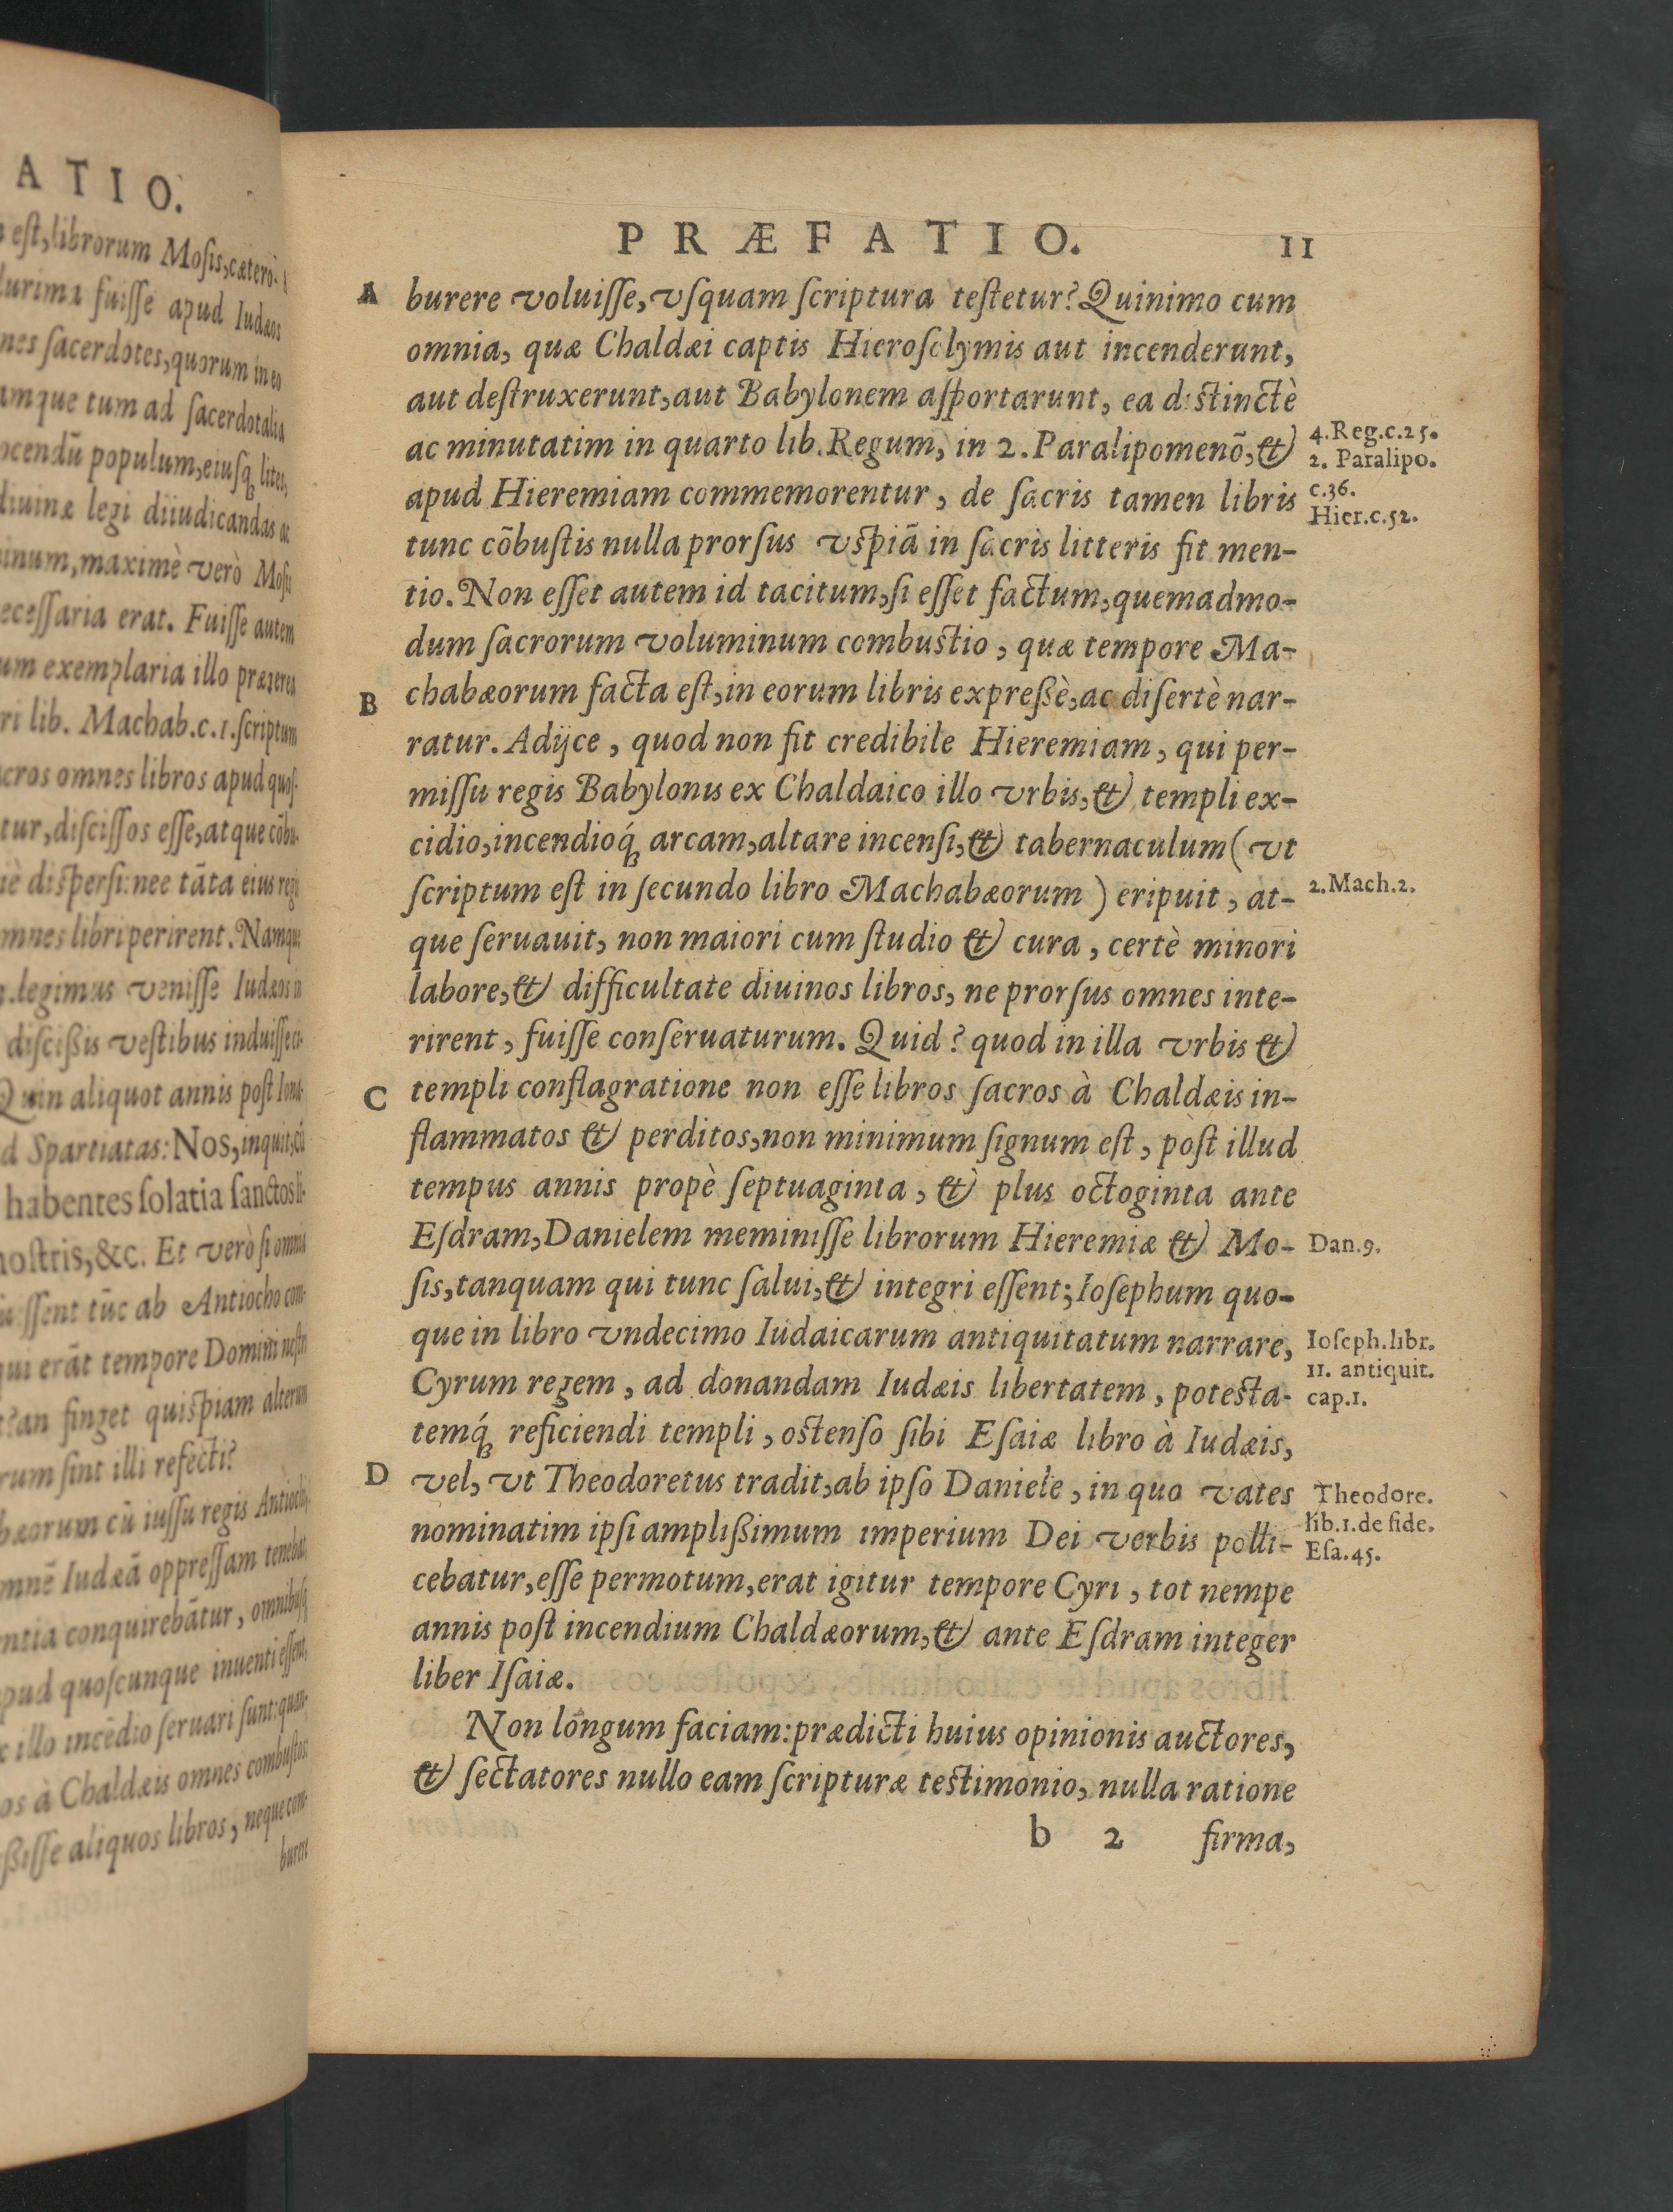 ATIO.
est, librorum Mosis, cætero-
fuisse apud Iudæos
sacerdotes, quorum in eo
tum ad sacerdotalia
populum, eiusq́; lites,
legi diiudicandas ac
maximè verò Mosis
erat. Fuisse autem
exemplaria illo præterea
lib. Machab. c. 1. scriptum
omnes libros apud quos-
discissos esse, atque cōbu-
dispersi: nec tāta eius regis
libri perirent. Namque
legimus venisse Iudæos in
discißis vestibus induisse ci-
Quin aliquot annis post Iona-
Spartiatas: Nos, inquit, cū
habentes solatia sanctos li-
nostris, &c. Et verò si omnia
tūc ab Antiocho com-
erāt tempore Domini nostri
an finget quispiam alterum
sint illi refecti?
cū iussu regis Antiochi,
Iudæā oppressam tenebat,
conquirebātur, omnibusq́;
quoscunque inuenti essent,
illo incēdio seruari sunt: quan-
à Chaldæis omnes combustos
aliquos libros, neque com-
burere
PRÆFATIO. 11
A burere voluisse, vsquam scriptura testetur? Quinimo cum
omnia, quæ Chaldæi captis Hierosolymis aut incenderunt,
aut destruxerunt, aut Babylonem asportarunt, ea distinctè
ac minutatim in quarto lib. Regum, in 2. Paralipomenō, &
4. Reg. c. 25.
2. Paralipo.
apud Hieremiam commemorentur, de sacris tamen libris
c. 36.
Hier. c. 52.
tunc cōbustis nulla prorsus vspiā in sacris litteris fit men-
tio. Non esset autem id tacitum, si esset factum, quemadmo-
dum sacrorum voluminum combustio, quæ tempore Ma-
B chabæorum facta est, in eorum libris expreßè, ac disertè nar-
ratur. Adijce, quod non fit credibile Hieremiam, qui per-
missu regis Babylonis ex Chaldaico illo vrbis, & templi ex-
cidio, incendioq́; arcam, altare incensi, & tabernaculum (vt
scriptum est in secundo libro Machabæorum) eripuit, at-
2. Mach. 2.
que seruauit, non maiori cum studio & cura, certè minori
labore, & difficultate diuinos libros, ne prorsus omnes inte-
rirent, fuisse conseruaturum. Quid? quod in illa vrbis &
C templi conflagratione non esse libros sacros à Chaldæis in-
flammatos & perditos, non minimum signum est, pòst illud
tempus annis propè septuaginta, & plus octoginta ante
Esdram, Danielem meminisse librorum Hieremiæ & Mo-
Dan. 9.
sis, tanquam qui tunc salui, & integri essent; Iosephum quo-
que in libro vndecimo Iudaicarum antiquitatum narrare,
Ioseph. libr.
11. antiquit.
cap. 1.
Cyrum regem, ad donandam Iudæis libertatem, potesta-
temq́; reficiendi templi, ostenso sibi Esaiæ libro à Iudæis,
D vel, vt Theodoretus tradit, ab ipso Daniele, in quo vates
Theodore.
lib. 1. de fide.
Esa. 45.
nominatim ipsi amplißimum imperium Dei verbis polli-
cebatur, esse permotum, erat igitur tempore Cyri, tot nempe
annis post incendium Chaldæorum, & ante Esdram integer
liber Isaiæ.
Non longum faciam: prædicti huius opinionis auctores,
& sectatores nullo eam scripturæ testimonio, nulla ratione
b 2 firma,